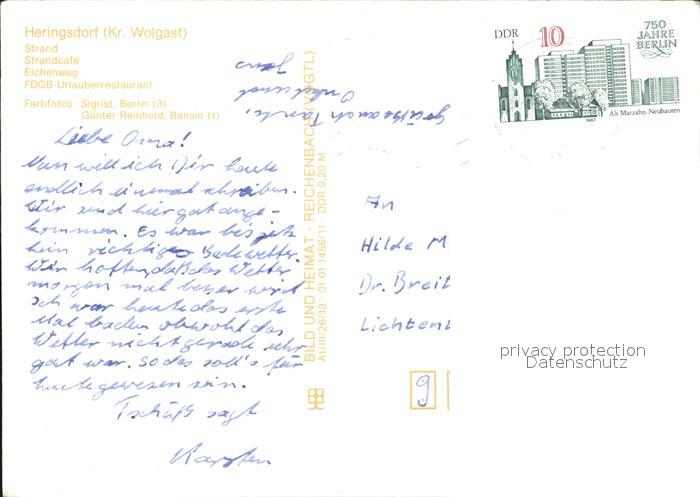 Heringsdorf (Kr. Wolgast)
Strand
Strandcafé
Eichenweg
FDGB-Urlauberrestaurant
Farbfotos: Sigrist, Berlin (3)
Günter Reinhold, Bansin (1)
Liebe Oma!
Nun will ich Dir heute
endlich einmal schreiben.
Wir sind hier gut ange-
kommen. Es war bis jetz
kein richtiges Badewetter.
Wir hoffen, daß das Wetter
morgen mal beßer wird
Ich war heute das erste
Mal baden obwohl das
Wetter nicht gerade sehr
gut war. So das soll's für
heute gewesen sein.
Tschüß sagt
Karsten
grüße auch Tante,
Onkel und
BILD UND HEIMAT · REICHENBACH (VOGTL)
A1/III/26/13 01 01 1456/11 DDR 0,20 M
DDR
10
750
JAHRE
BERLIN
Alt Marzahn-Neubauten
1987
An
Hilde M
Dr. Breit
Lichten
9
privacy protection
Datenschutz